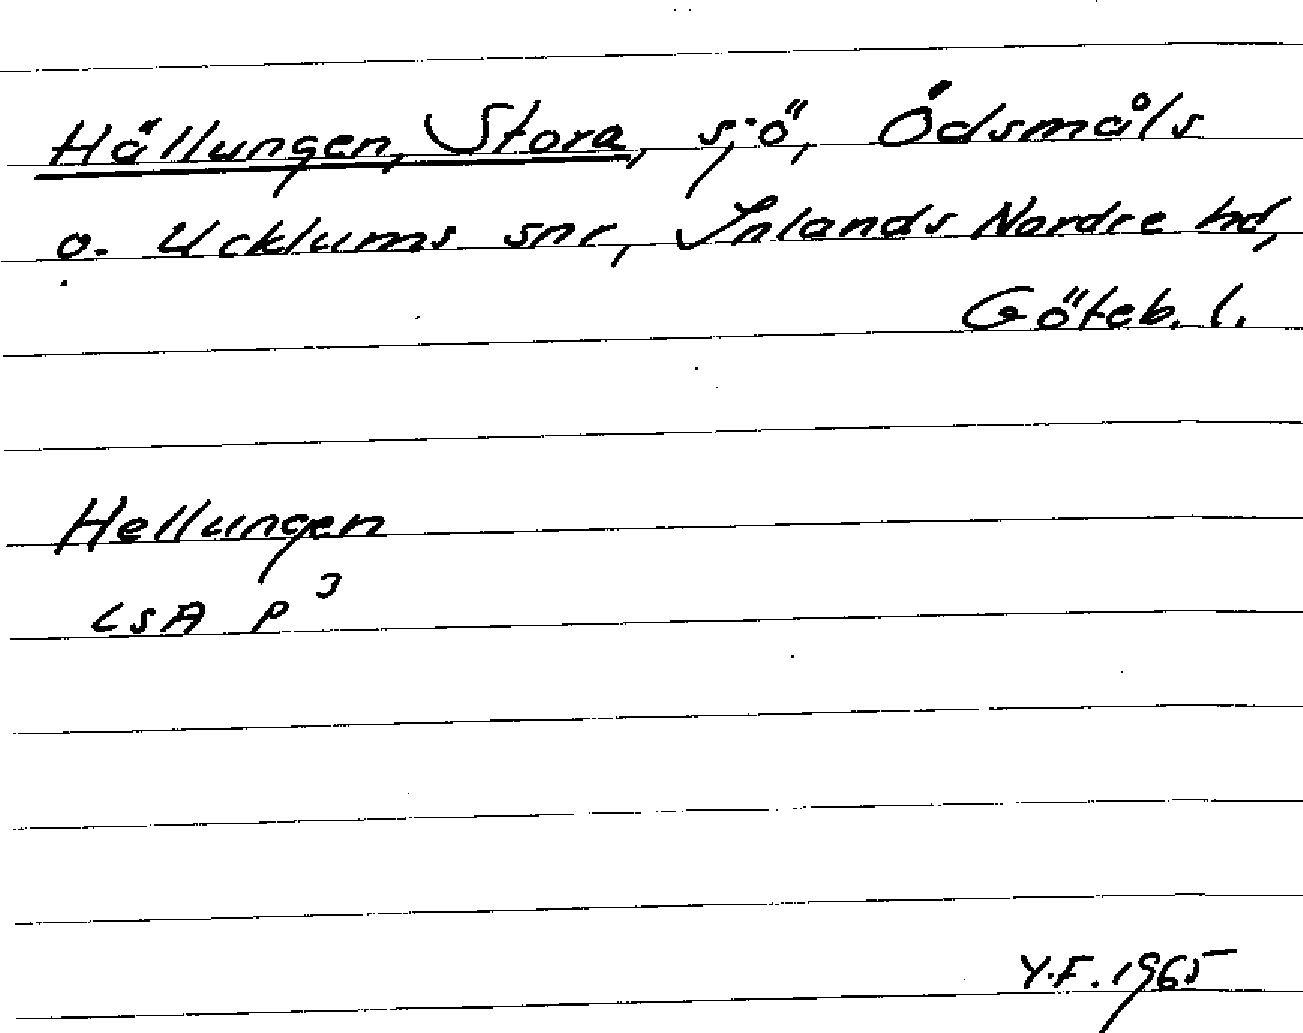 Hällungen, Stora, sjö, Ödsmåls
o. Ucklums snr, Inlands Nordre hd,
Göteb. l.
Hellungen
LSA P ³
Y.F. 1965